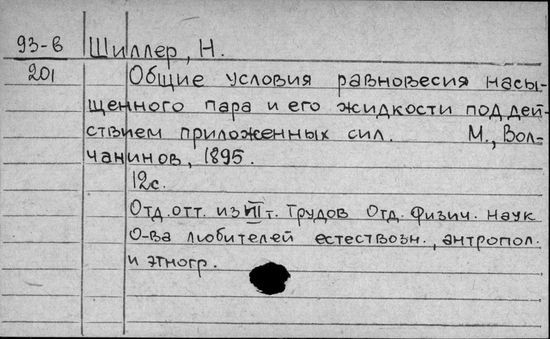 93-в Шиллер, Н.
201 Общие условия равновесия насы-
щенного пара и его жидкости под дей-
ствием приложенных сил. М., Вол-
чанинов, 1895.
12с.
Отд. отт. из VII т. Трудов Отд. физич. наук
О-ва любителей естествозн., антропол.
и этногр.